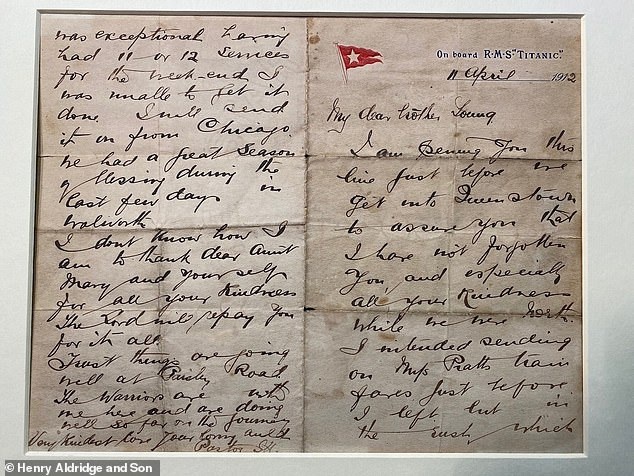 On board R·M·S·"TITANIC."
11 April 1912
My dear brother Young
I am penning you this
line just before we
get into Queenstown
to assure you that
I have not forgotten
you, and especially
all your kindness
while we were North.
I intended sending
on Miss Pratts train
fares just before
I left but in
the rush which
was exceptional having
had 11 or 12 Services
for the week-end I
was unable to get it
done. I will send
it on from Chicago.
We had a great Season
of blessing during the
last few days in
Walworth
I dont know how I
am to thank dear Aunt
Mary and yourself
for all your kindness
The Lord will repay you
for it all.
Trust things are going
well at Paisley Road
The Warriors are with
me here and are doing
well so far on the journey
Very kindest love your loving auld
Pastor JH.
© Henry Aldridge and Son